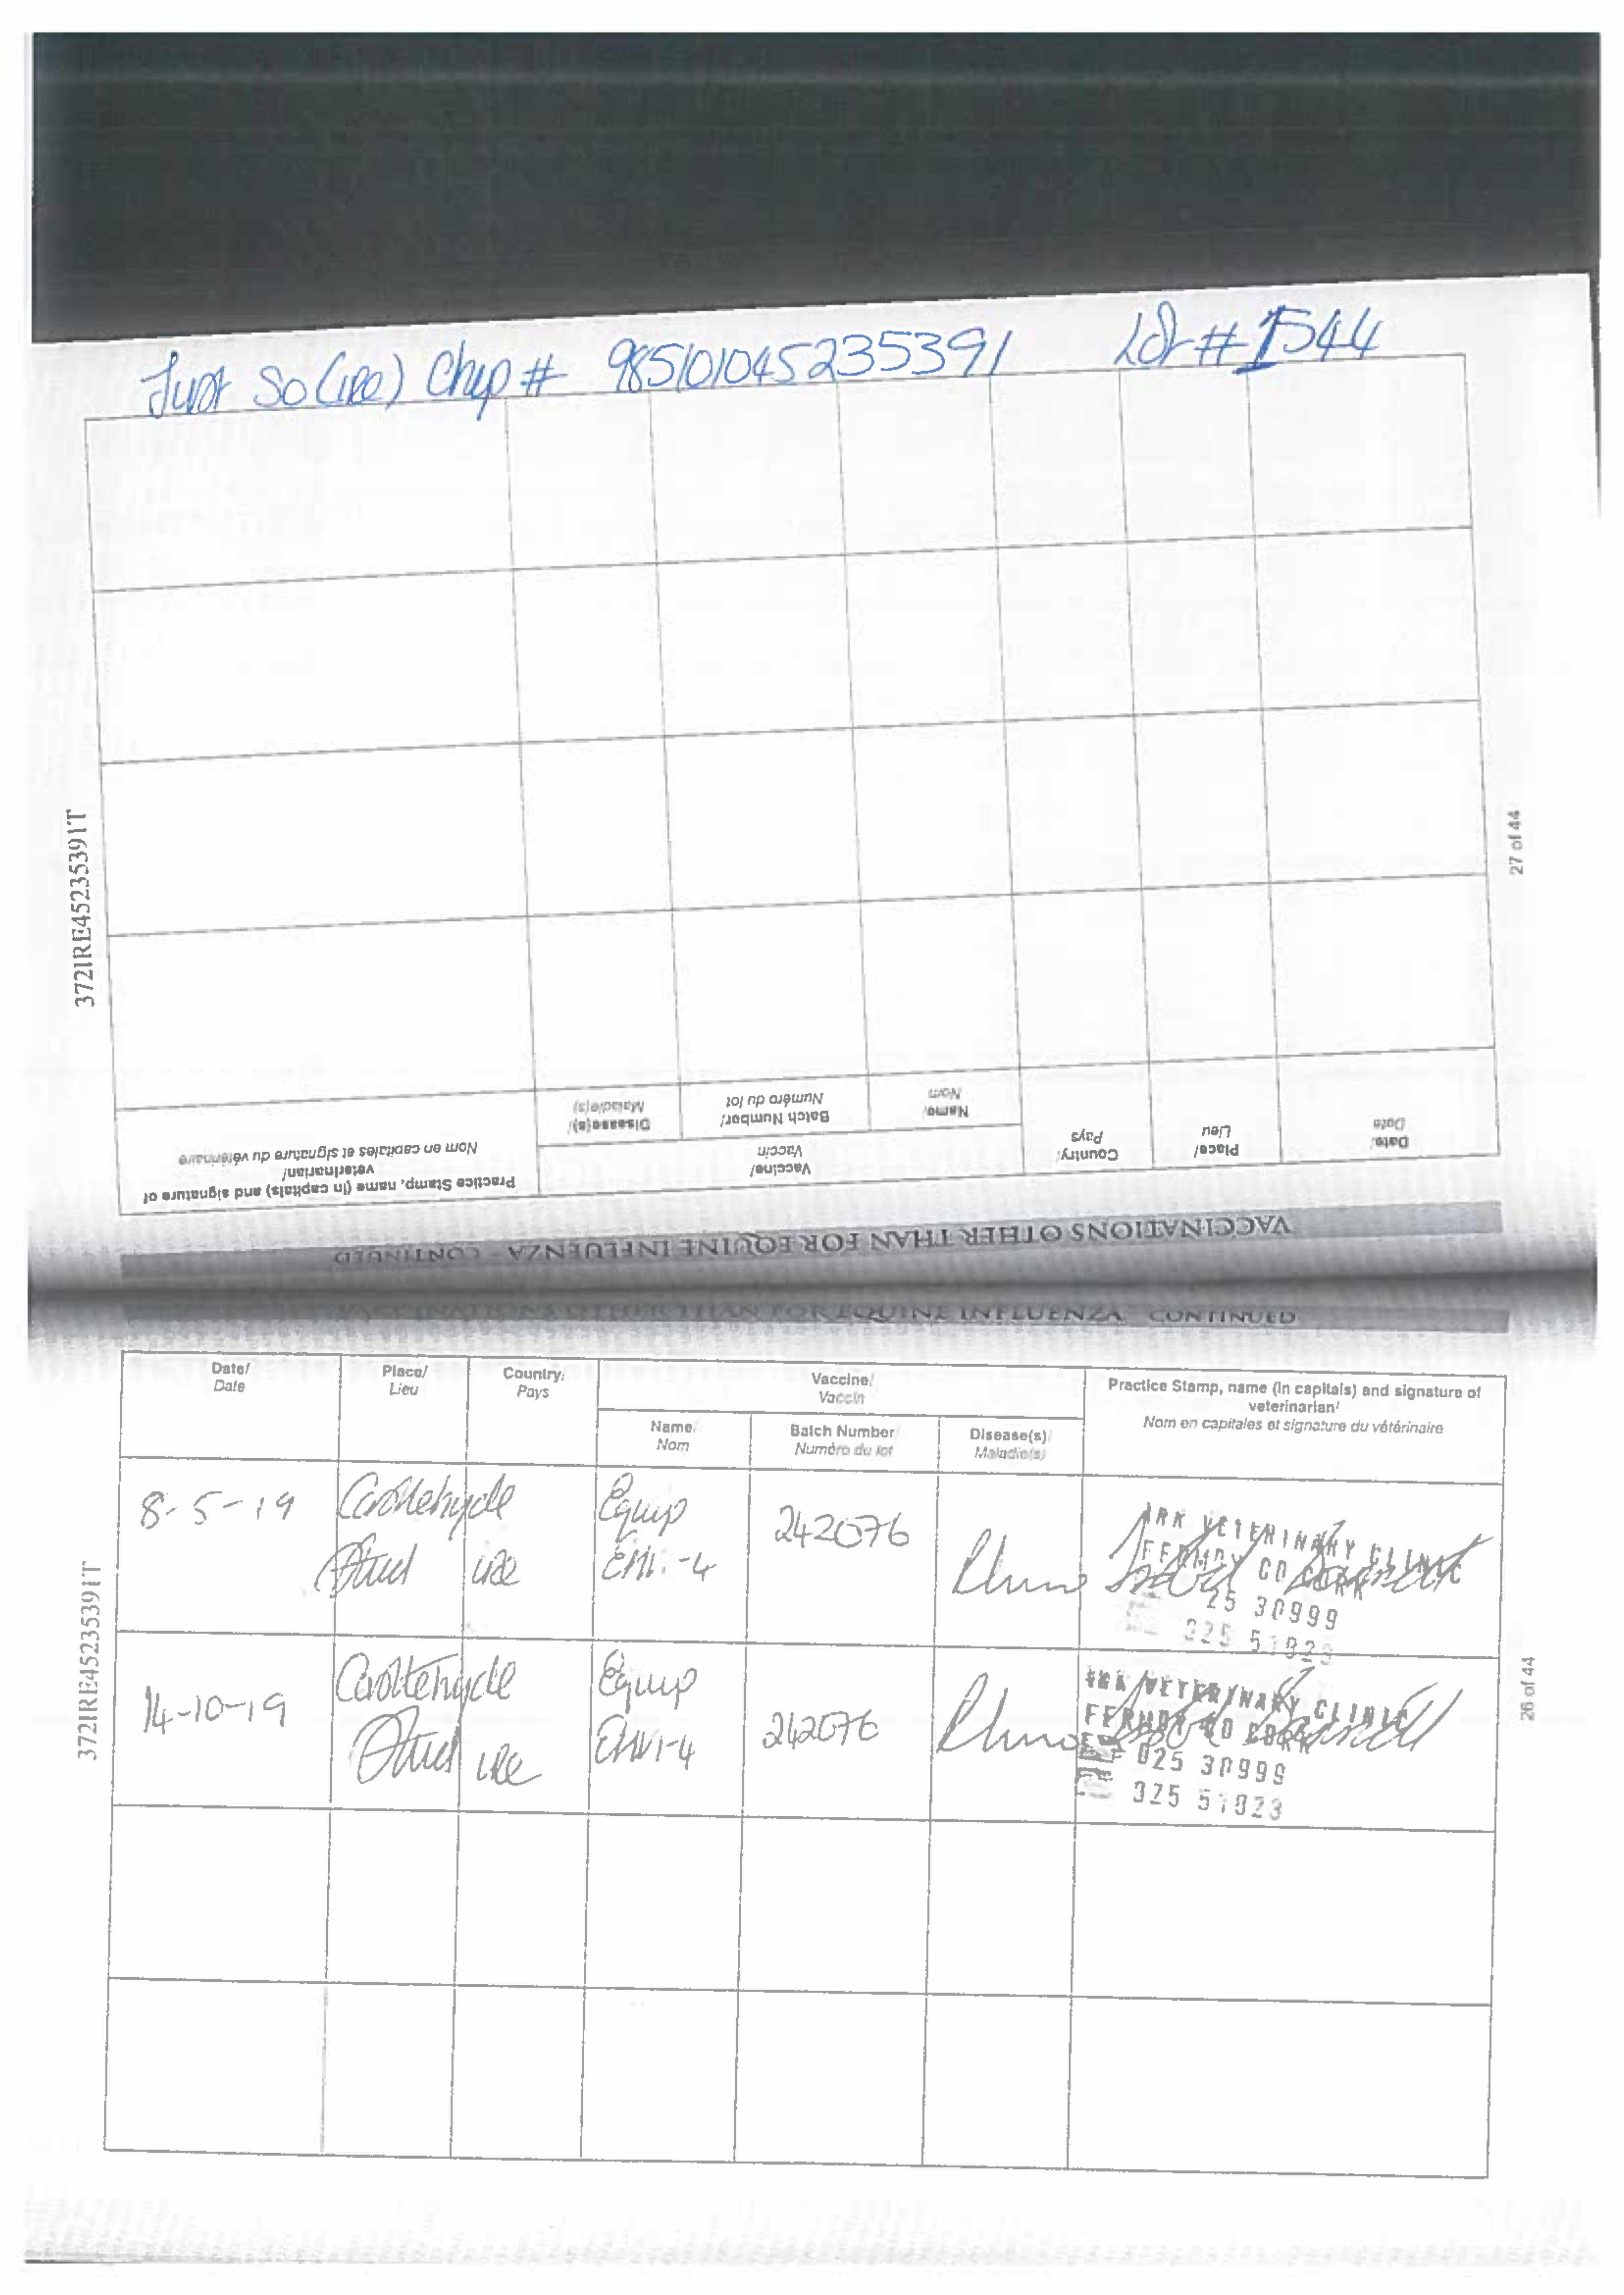 Just So (ire) Chip # 985101045235391 Lot # 1544
372IRE45235391T
27 of 44
VACCINATIONS OTHER THAN FOR EQUINE INFLUENZA - CONTINUED
Date/
Date
Place/
Lieu
Country/
Pays
Vaccine/
Vaccin
Name/
Nom
Batch Number/
Numéro du lot
Disease(s)/
Maladie(s)
Practice Stamp, name (in capitals) and signature of
veterinarian/
Nom en capitales et signature du vétérinaire
VACCINATIONS OTHER THAN FOR EQUINE INFLUENZA - CONTINUED
Date/
Date
Place/
Lieu
Country/
Pays
Vaccine/
Vaccin
Name/
Nom
Batch Number/
Numéro du lot
Disease(s)/
Maladie(s)
Practice Stamp, name (in capitals) and signature of
veterinarian/
Nom en capitales et signature du vétérinaire
8-5-19
Castlehyde
Stud
ire
Equip
EHV-4
242076
Rhino
ARK VETERINARY CLINIC
FERMOY CO CORK
25 30999
025 51923
14-10-19
Castlehyde
Stud
ire
Equip
EHV-4
242076
Rhino
ARK VETERINARY CLINIC
FERMOY CO CORK
025 30999
025 51923
372IRE45235391T
26 of 44